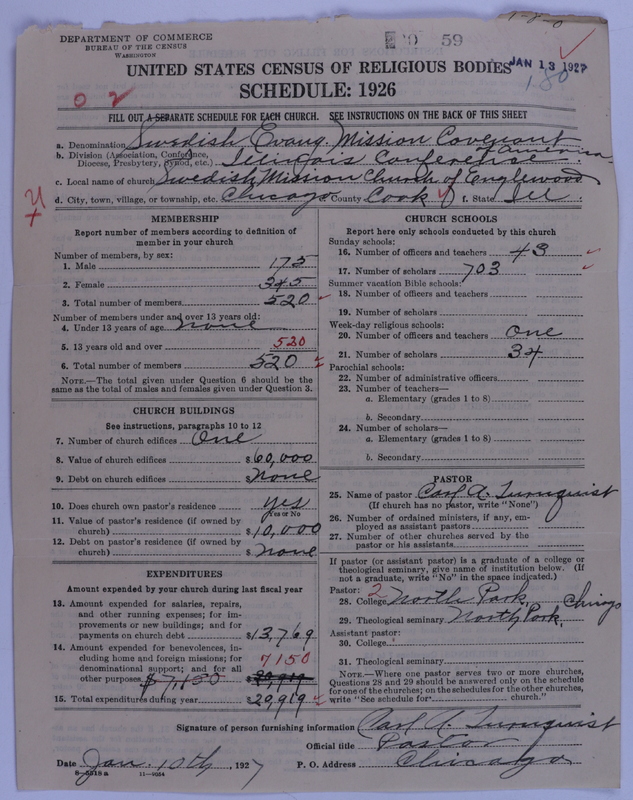 DEPARTMENT OF COMMERCE
BUREAU OF THE CENSUS
WASHINGTON
59
JAN 13 1927
180
UNITED STATES CENSUS OF RELIGIOUS BODIES
SCHEDULE: 1926
02
FILL OUT A SEPARATE SCHEDULE FOR EACH CHURCH. SEE INSTRUCTIONS ON THE BACK OF THIS SHEET
a. Denomination Swedish Evang. Mission Covenant of America
b. Division (Association, Conference, Diocese, Presbytery, Synod, etc.) Illinois Conference.
c. Local name of church Swedish Mission Church of Englewood
d. City, town, village, or township, etc. Chicago e. County Cook f. State Ill
MEMBERSHIP
Report number of members according to definition of
member in your church
Number of members, by sex:
1. Male 175
2. Female 345
3. Total number of members 520
Number of members under and over 13 years old:
4. Under 13 years of age none
5. 13 years old and over 520
6. Total number of members 520
NOTE.—The total given under Question 6 should be the
same as the total of males and females given under Question 3.
CHURCH BUILDINGS
See instructions, paragraphs 10 to 12
7. Number of church edifices One
8. Value of church edifices $60,000
9. Debt on church edifices $None
10. Does church own pastor's residence yes
Yes or No
11. Value of pastor's residence (if owned by
church) $10,000
12. Debt on pastor's residence (if owned by
church) $None
EXPENDITURES
Amount expended by your church during last fiscal year
13. Amount expended for salaries, repairs,
and other running expenses; for im-
provements or new buildings; and for
payments on church debt $13,769
14. Amount expended for benevolences, in-
cluding home and foreign missions; for
denominational support; and for all
other purposes $7,150 7150
15. Total expenditures during year $20,919
CHURCH SCHOOLS
Report here only schools conducted by this church
Sunday schools:
16. Number of officers and teachers 43
17. Number of scholars 703
Summer vacation Bible schools:
18. Number of officers and teachers
19. Number of scholars
Week-day religious schools:
20. Number of officers and teachers One
21. Number of scholars 34
Parochial schools:
22. Number of administrative officers
23. Number of teachers—
a. Elementary (grades 1 to 8)
b. Secondary
24. Number of scholars—
a. Elementary (grades 1 to 8)
b. Secondary
PASTOR
25. Name of pastor Carl A. Turnquist
(If church has no pastor, write "None")
26. Number of ordained ministers, if any, em-
ployed as assistant pastors
27. Number of other churches served by the
pastor or his assistants
If pastor (or assistant pastor) is a graduate of a college or
theological seminary, give name of institution below. (If
not a graduate, write "No" in the space indicated.)
Pastor: 2
28. College North Park, Chicago
29. Theological seminary North Park,
Assistant pastor:
30. College
31. Theological seminary
NOTE.—Where one pastor serves two or more churches,
Questions 28 and 29 should be answered only on the schedule
for one of the churches; on the schedules for the other churches,
write "See schedule for church."
Signature of person furnishing information Carl A. Turnquist
Official title Pastor
Date Jan. 10th, 1927 P. O. Address Chicago
8—5518 a 11—9054